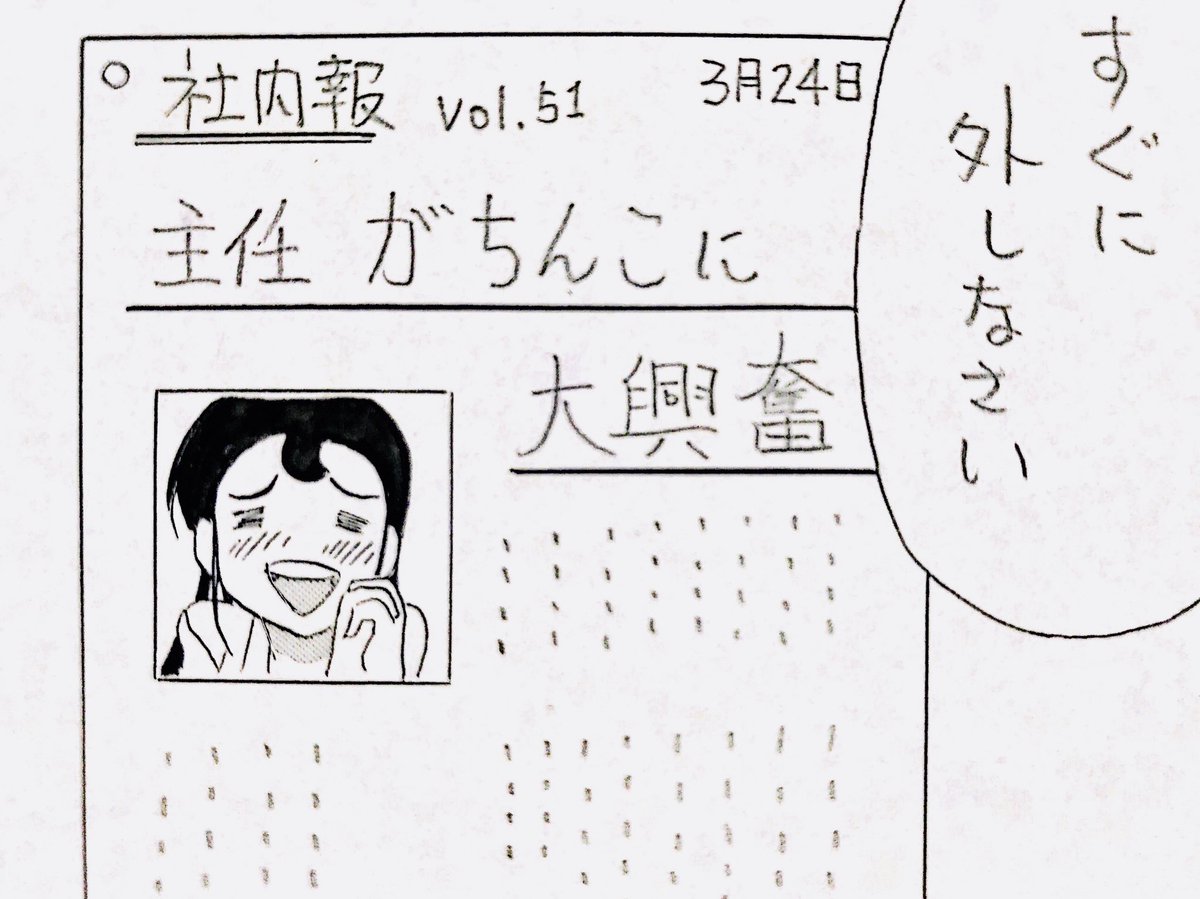 社内報 vol.51 3月24日
主任 がちんこに
大興奮
すぐに
外しなさい